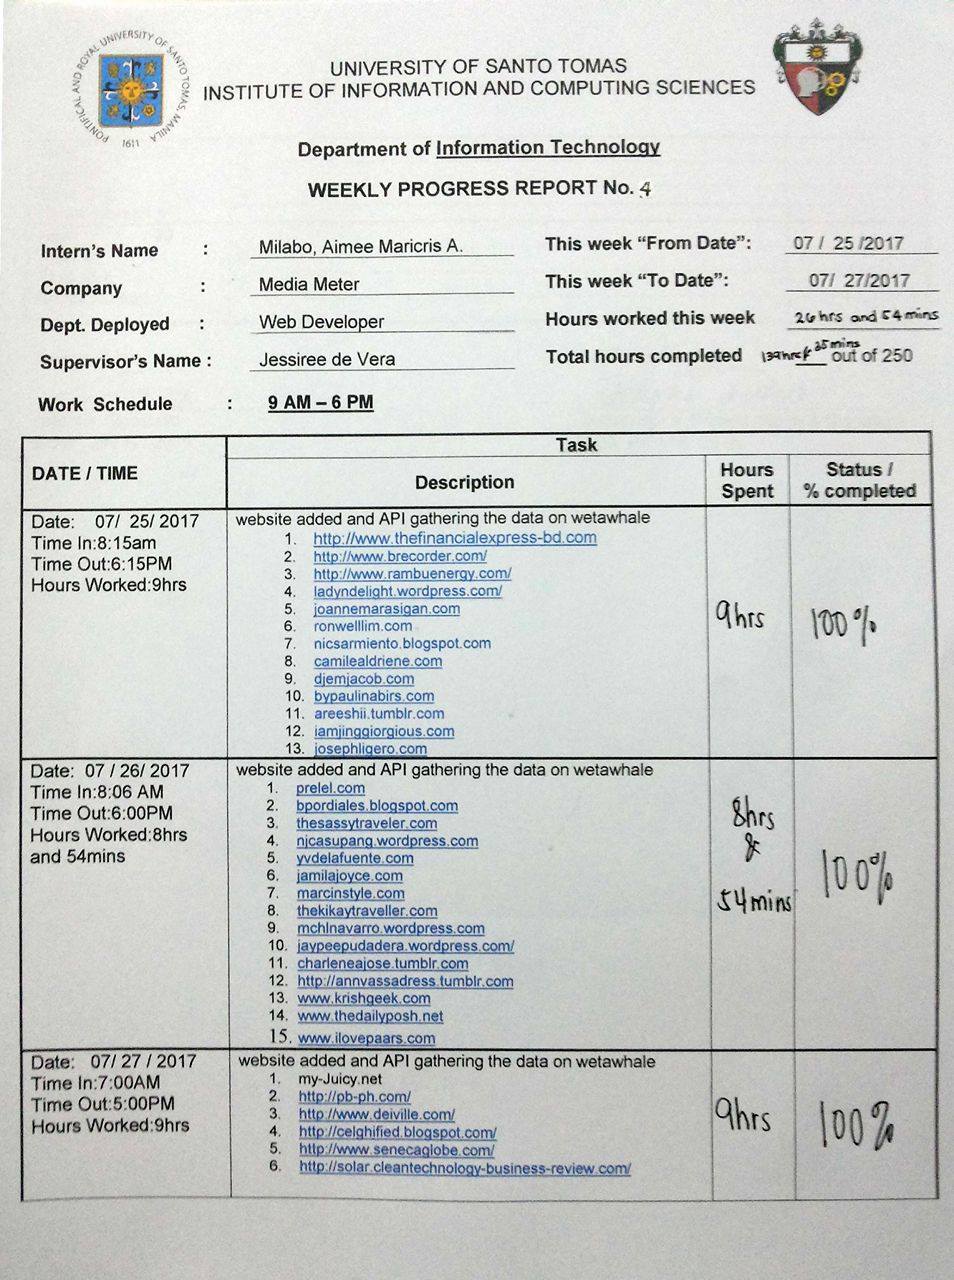 PONTIFICAL AND ROYAL UNIVERSITY OF SANTO TOMAS, MANILA
1611
UNIVERSITY OF SANTO TOMAS
INSTITUTE OF INFORMATION AND COMPUTING SCIENCES
Department of Information Technology
WEEKLY PROGRESS REPORT No. 4
Intern's Name : Milabo, Aimee Maricris A. This week "From Date": 07 / 25 /2017
Company : Media Meter This week "To Date": 07/ 27/2017
Dept. Deployed : Web Developer Hours worked this week 26 hrs and 54 mins
Supervisor's Name : Jessiree de Vera Total hours completed 35 mins out of 250
Work Schedule : 9 AM – 6 PM
DATE / TIME Task
Description Hours Spent Status / % completed
Date: 07/ 25/ 2017
Time In:8:15am
Time Out:6:15PM
Hours Worked:9hrs
website added and API gathering the data on wetawhale
1. http://www.thefinancialexpress-bd.com
2. http://www.brecorder.com/
3. http://www.rambuenergy.com/
4. ladyndelight.wordpress.com/
5. joannemarasigan.com
6. ronwelllim.com
7. nicsarmiento.blogspot.com
8. camilealdriene.com
9. djemjacob.com
10. bypaulinabirs.com
11. areeshii.tumblr.com
12. iamjinggiorgious.com
13. josephligero.com
9hrs
100%
Date: 07 / 26/ 2017
Time In:8:06 AM
Time Out:6:00PM
Hours Worked:8hrs
and 54mins
website added and API gathering the data on wetawhale
1. prelel.com
2. bpordiales.blogspot.com
3. thesassytraveler.com
4. njcasupang.wordpress.com
5. yvdelafuente.com
6. jamilajoyce.com
7. marcinstyle.com
8. thekikaytraveller.com
9. mchlnavarro.wordpress.com
10. jaypeepudadera.wordpress.com/
11. charleneajose.tumblr.com
12. http://annvassadress.tumblr.com
13. www.krishgeek.com
14. www.thedailyposh.net
15. www.ilovepaars.com
8hrs
&
54mins
100%
Date: 07/ 27 / 2017
Time In:7:00AM
Time Out:5:00PM
Hours Worked:9hrs
website added and API gathering the data on wetawhale
1. my-Juicy.net
2. http://pb-ph.com/
3. http://www.deiville.com/
4. http://celghified.blogspot.com/
5. http://www.senecaglobe.com/
6. http://solar.cleantechnology-business-review.com/
9hrs
100%